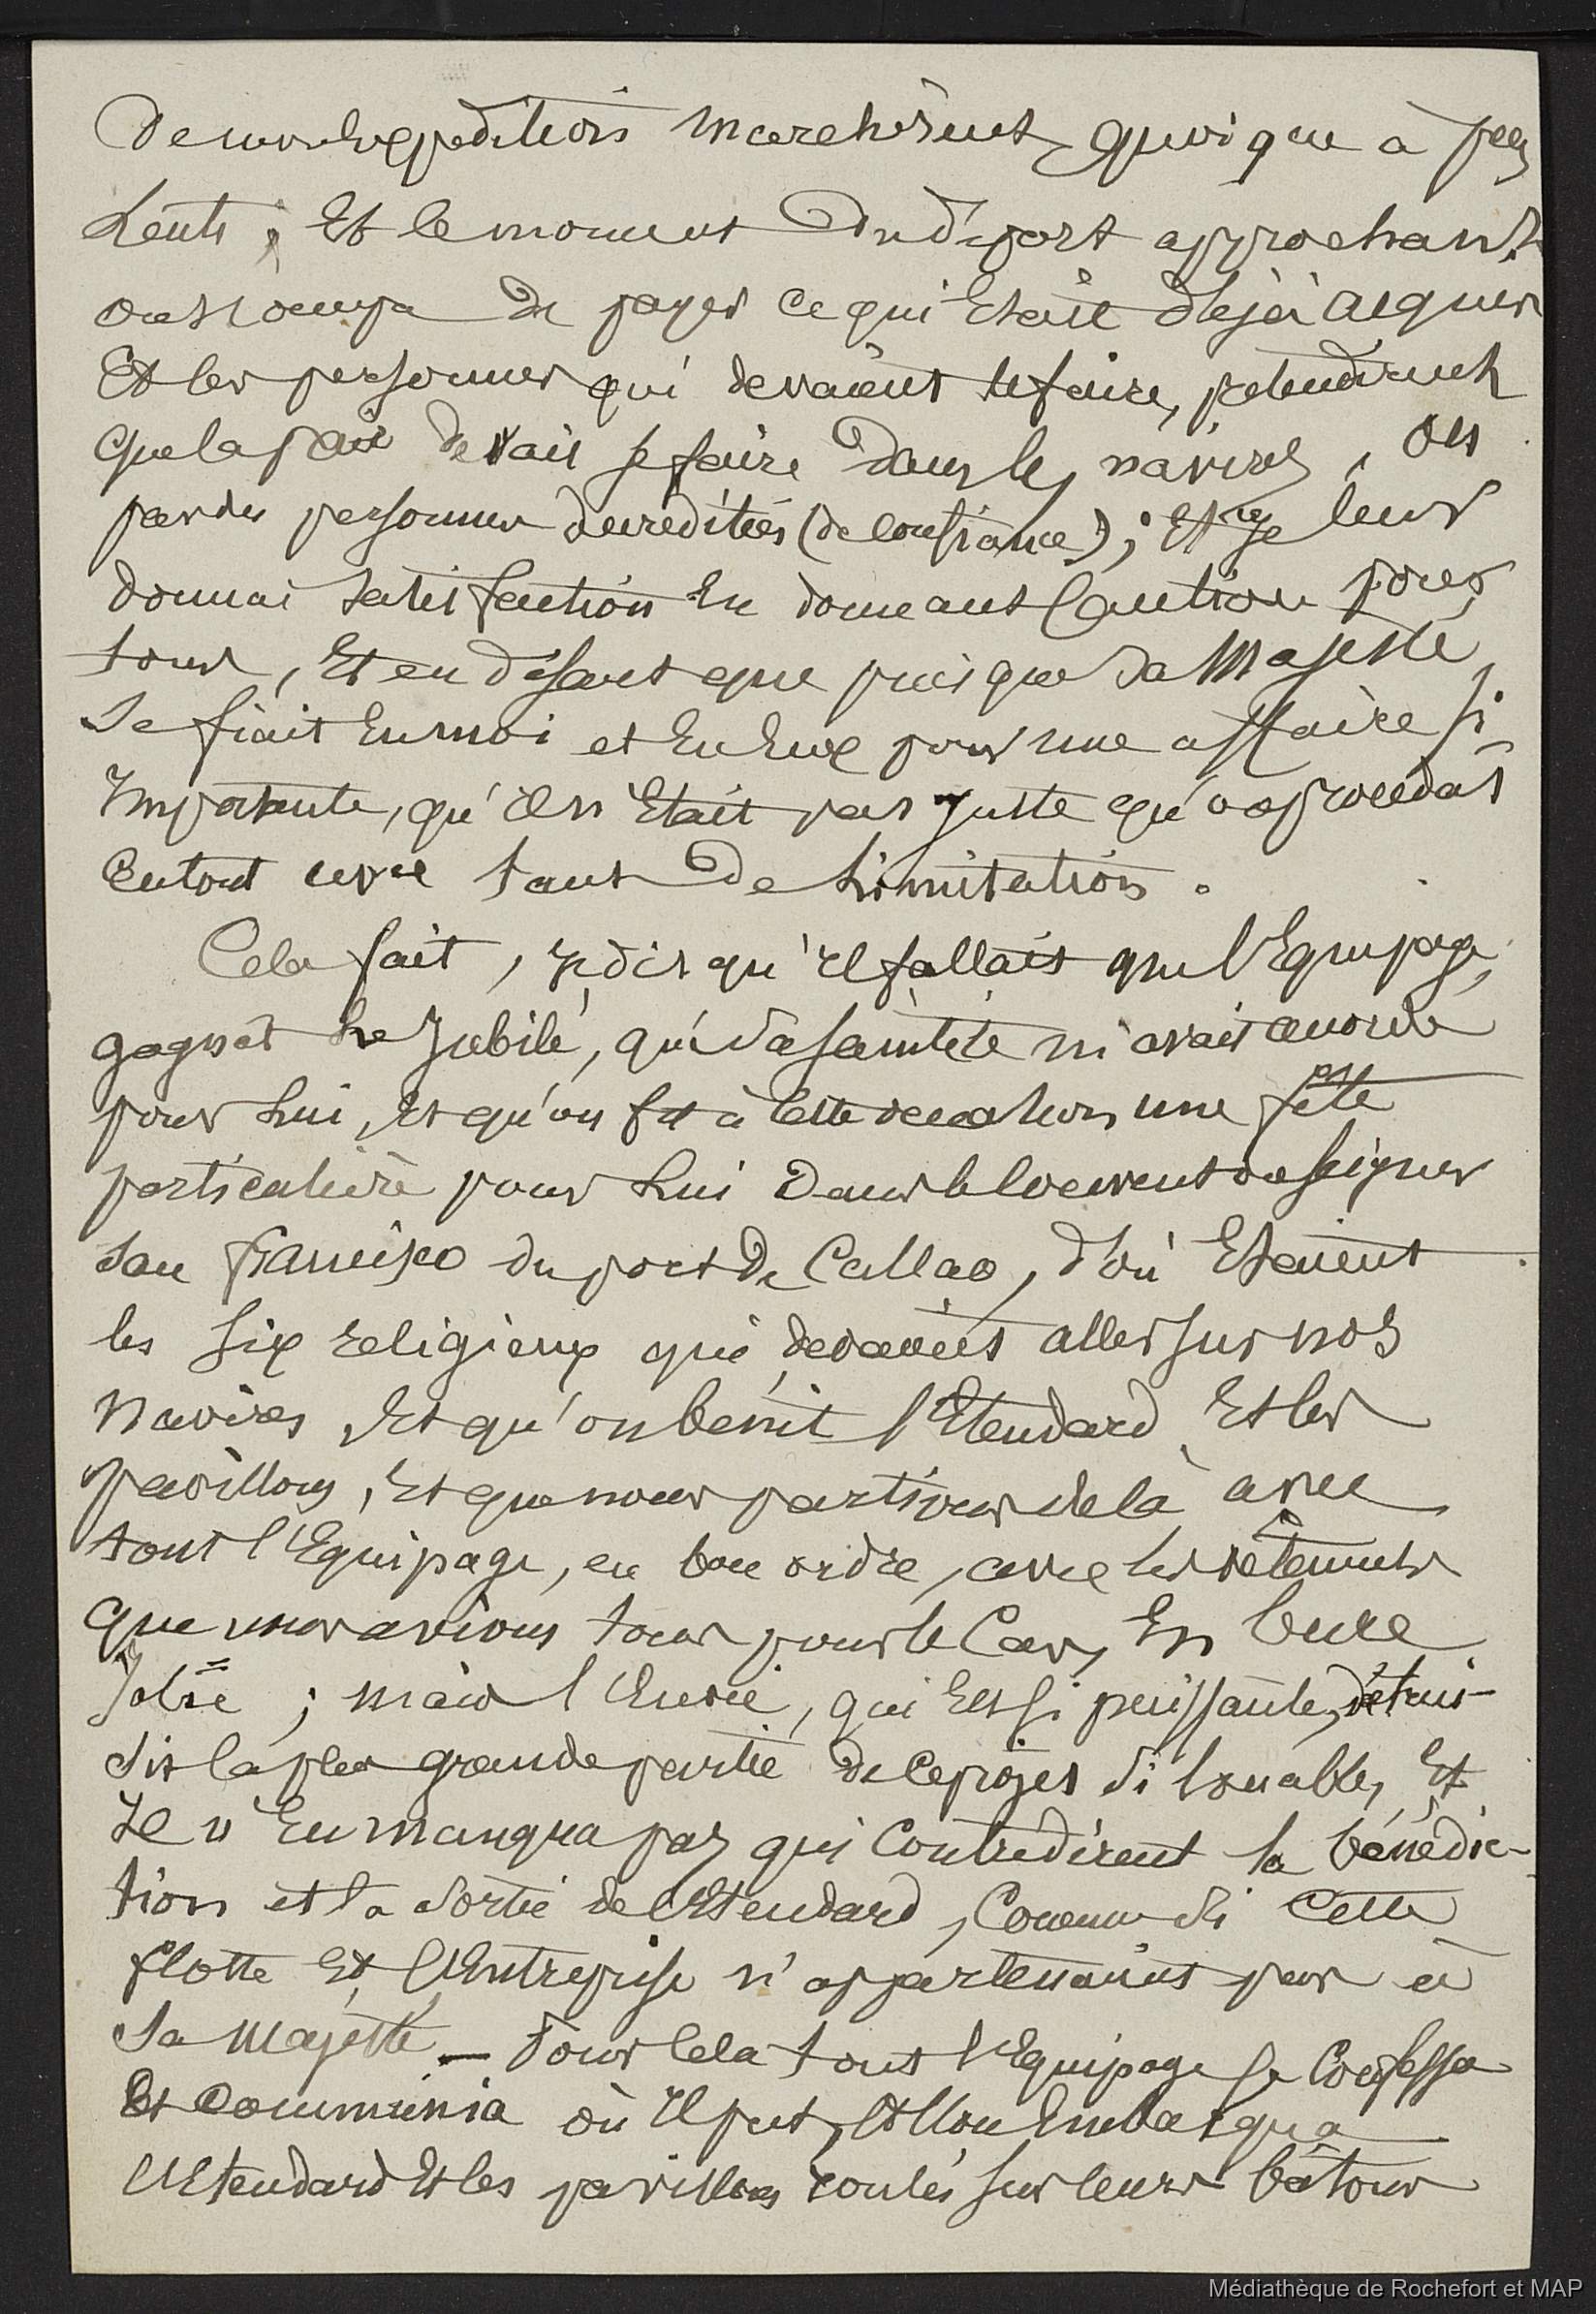 De notre Expedition marchèrent quoique à pas
Lents, Et le moment Du départ approchant
on s'occupa De payer ce qui Etait déjà acquis
Et les personnes qui devaient le faire, prétendirent
que la paie devait se faire Dans les navires, ou
par des personnes accreditées (de confiance); Et je leur
donnai satisfaction En donnant Caution pour
tous, Et en disant que puisque Sa Majesté
se fiait En moi et En Eux pour une affaire si
Importante, qu'il n'Etait pas juste qu'on procédat
en tout avec tant De Limitation.
Cela fait, je dis qu'il fallait que l'Equipage
gagnât Le Jubilé, que Sa Sainteté m'avait accordé
pour Lui, Et qu'on fit à cette occation une fête
particulière pour Lui Dans le couvent du seigneur
San Francisco du port De Callao, d'où Etaient
les six religieux qui devaient aller sur nos
Navires, Et qu'on bénit l'Etendard Et les
pavillons, Et que nous partions de là avec
tout l'Equipage, en bon ordre, avec les vêtements
que nous avions tous pour le Cas, En bure
Jolie; mais l'Envie, qui Est si puissante, détrui-
sit la plus grande partie de ce projet si louable, Et
Il n'En manqua pas qui Contredirent la bénédic-
tion et la Sortie de l'Etendard, Comme si cette
flotte Et l'Entreprise n'appartenaient pas à
Sa Majesté – Pour Cela tout l'Equipage se Confessa
Et Communia où Il put, Et l'on Embarqua
l'Etendard Et les pavillons roulés sur leurs bâtons
Médiathèque de Rochefort et MAP